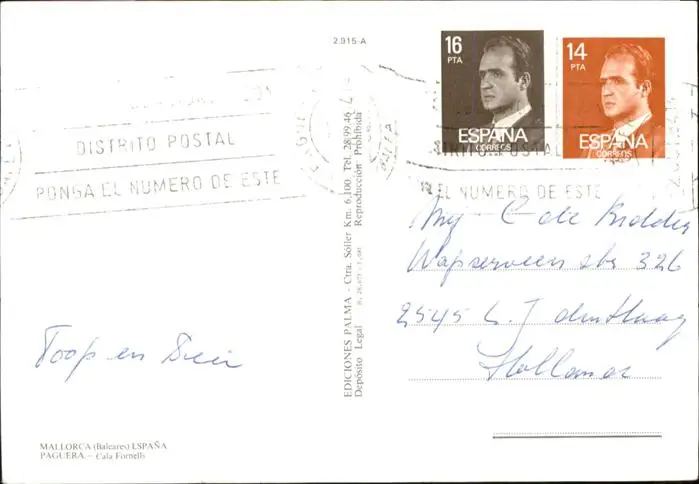 2.915-A
16
PTA
ESPAÑA
CORREOS
14
PTA
ESPAÑA
CORREOS
DISTRITO POSTAL
PONGA EL NUMERO DE ESTE
POSTAL
EL NUMERO DE ESTE
EDICIONES PALMA - Ctra. Sóller Km. 6,100. Tel. 28.99.46
Depósito Legal
Reproducción Prohibida
C de
Wapserveen str 326
2545
den Haag
Holland
Toop en
MALLORCA (Baleares) ESPAÑA
PAGUERA.- Cala Fornells